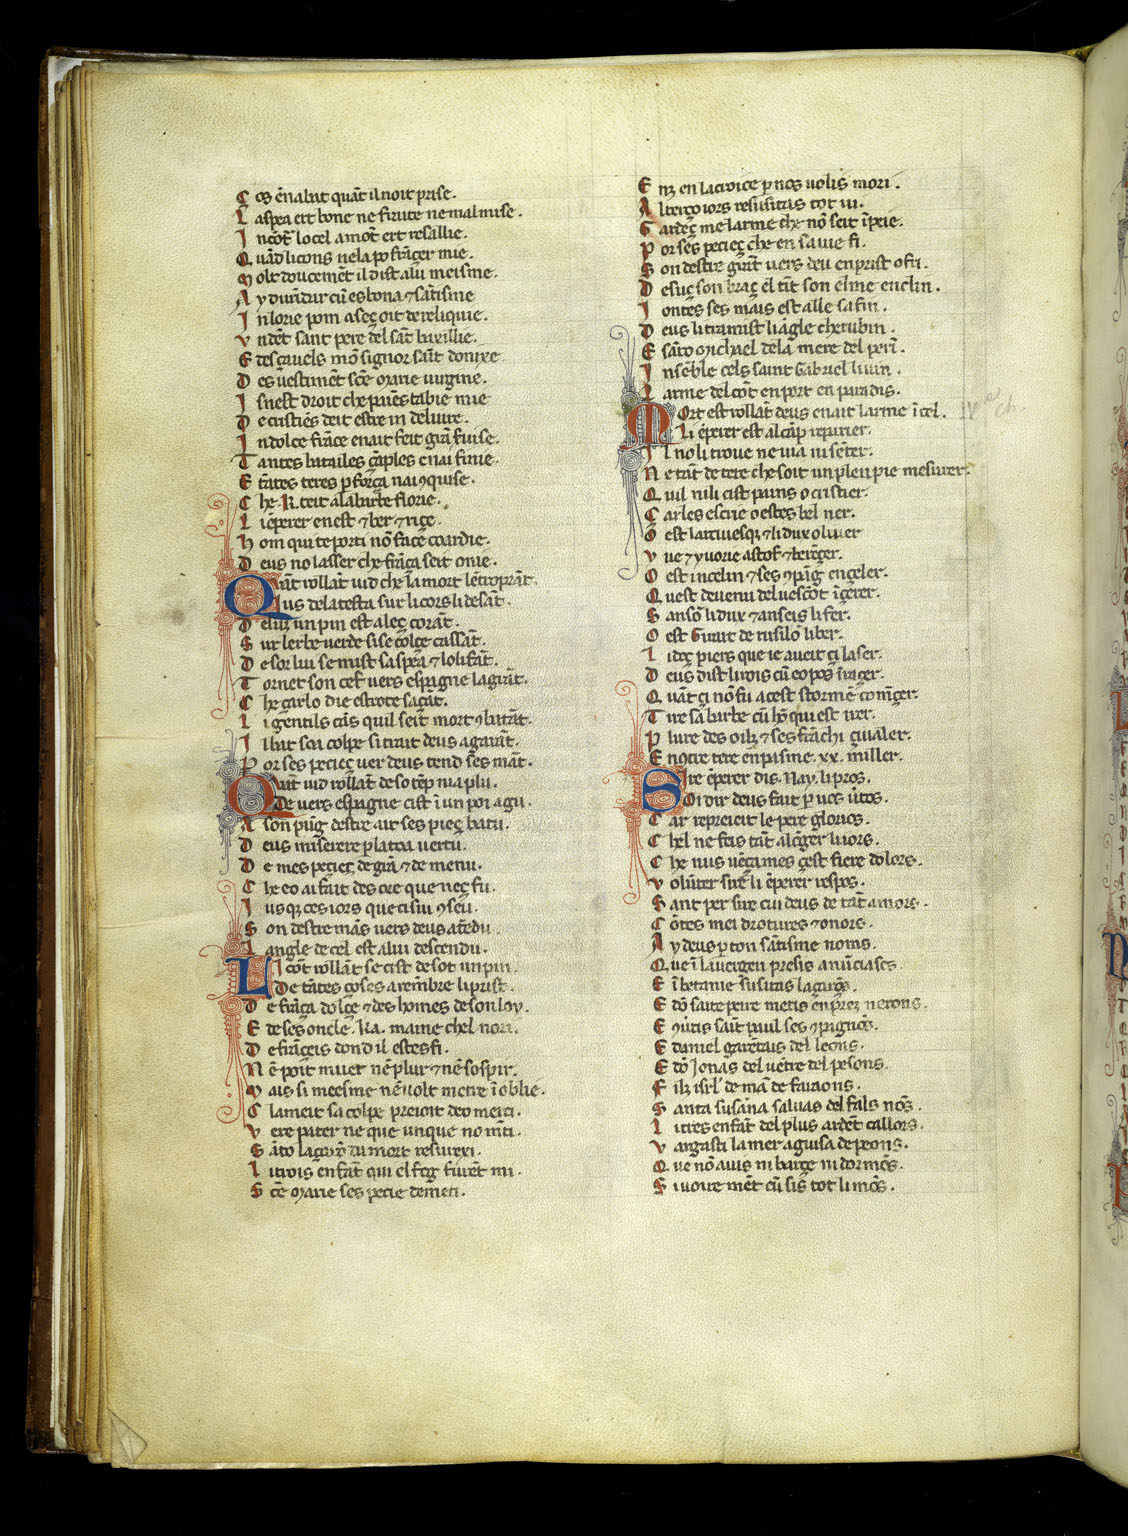 C os ēnabat quāt il noit prise.
L aspea ert bone ne firute ne malmise.
I ncōt̄ lo cel amōt ert resallie.
Q uād li cons ne la po frāçer mie.
M olt doucemēt il dist a lui meisme.
A y durīdar cū es bona ⁊ sātisme
I n l orie pom aseç oit de reliquie.
V n dēt sant pere del sāt basillie.
E des çavels mō signor saīt donixe
D es uestimēt scē Marie uirgine.
I snest droit che paiēs tabie mie
D e cristiēs deit estre in deliure.
I n dolce frāce enait feit grā fiuise.
T antes batailes cāples enai finie.
E tātes teres p força nai ꝯquise.
C he .K. teit a la barbe florie.
L i ēperer enest ⁊ ber ⁊ riçe.
H om qui te porti nō facē coardie.
D eus no lasser che frāça seit onie.
Quāt rollāt uid che la mort lētroprāt.
Ius de la testa sur li cors li desāt.
D eliuz un pin est aleç corāt.
S ur lerbe uerde si se cōlçe cassāt.
D esor lui se mist sa spea ⁊ lolifāt.
T ornet son cef uers espagne la grāt.
C he Carlo die estrote sa çāt.
L i gentils cōs quil seit mort ꝯbatāt.
I l bat soa colpe si tirait deus a garāt.
P or ses pecieç uer deus tend sēs māt.
Quāt uid rollāt de so tēp nia plu.
De uers espagne cist ī un poi agu.
A son pūg destre ait ses pieç batu.
D eus miserere p la toa uertu.
D e mes pecieç de grā ⁊ de menu.
C he eo ai fait des ore que neç fu.
I usqz ces iors que ci sui ꝯseu.
S on destre māt uers deus atēdu.
L angle de cel est a lui descendu.
Li cōt rollāt se cist desot un pin.
De tātes çoses arembre li prist.
D e frāça dolçe ⁊ des homes de son loy.
E de ses oncle. Ka. maine chel nori.
D e frāçeis dond il estes fi.
N ē poit muer nē plur ⁊ nē sospir.
M ais si meesme nē uolt metre ī oblie.
C lameit sa colpe preioit deo merci.
V ere pater ne que unque no mēti.
S āto laçarō du mort resurexi.
L i trois enfāt qui el feg furēt mi.
S cē Marie ses pecie demeti.
E nz en la croice p nos uolis mori.
A l terço iors resusitas tot ui.
G ardeç me larme che nō seit ī peie.
P or ses pecieç che en sa uie fi.
S on destre guāt uers deu en prist ofri.
D esuç son braç el tīt son elme enclin.
I ontes ses māis est alle sa fin.
D eus li tramist li āgle cherubin.
E sāto Michael de la mere del peri.
I nsēble cels saint Gabriel li uin.
L arme del cōt en port en paradis.
Mort est rollāt deus en ait larme ī cel.
Li ēperer est al cāp repairer.
I l no li troue ne uia ni sēter.
N e tāt de tere che soit un plen pie mesurer.
Q uil nili cist pains o cristier.
C arles escrie o estes bel ner.
O est larciuesqz ⁊ li dux oliuer
V ue ⁊ yuorie astolf ⁊ berēger.
O est incelin ⁊ ses ꝯpāg engeler.
Q uest deuenu del uescōt īçerer.
S ansō li dux ⁊ anseis li fer.
O est Girart de rusilō liber.
L i doç piers que ie aueit ci laser.
D eus dist li rois cū eo pos īraçer.
Q uāt ci nō fu a cest stormēt comēçer.
T ire sa barbe cū hō qui est irer.
P lure des oilz ⁊ ses frāchi çiualer.
E nꝯtre tere enpasme .xx. miller.
Sire ēperer dis .Nay. li pros.
Toi dir deus fait p uos ūtos.
C ar repreieit le pere glorios.
C hel ne feis tāt alōger li iors.
C he nus uēçames çest fiere dolors.
V olūter sire li ēperer respos.
S ant per sire cui deus de tāt amors.
C ōtes mei drotures ⁊ onors.
A y deus p ton sātisme noms.
Q ue ī la uergen presis anūciases.
E ī betanie susitas laçarōs.
E dō saite peire metis ēn prez nerons.
E ꝯuertis saīt paul ses ꝯpagnōs.
E daniel garētais del leōns.
E dō Jonās del uētre del pesons.
F ilz isrl' de mā de faraons.
S anta susāna saluas del fals nōs.
L i tres enfāt del plus ardēt callors.
V argasti la mer a guisa de peons.
Q ue nō auis ni barçe ni dormōs.
S iuoire mēt cū sīs tot li mōs.